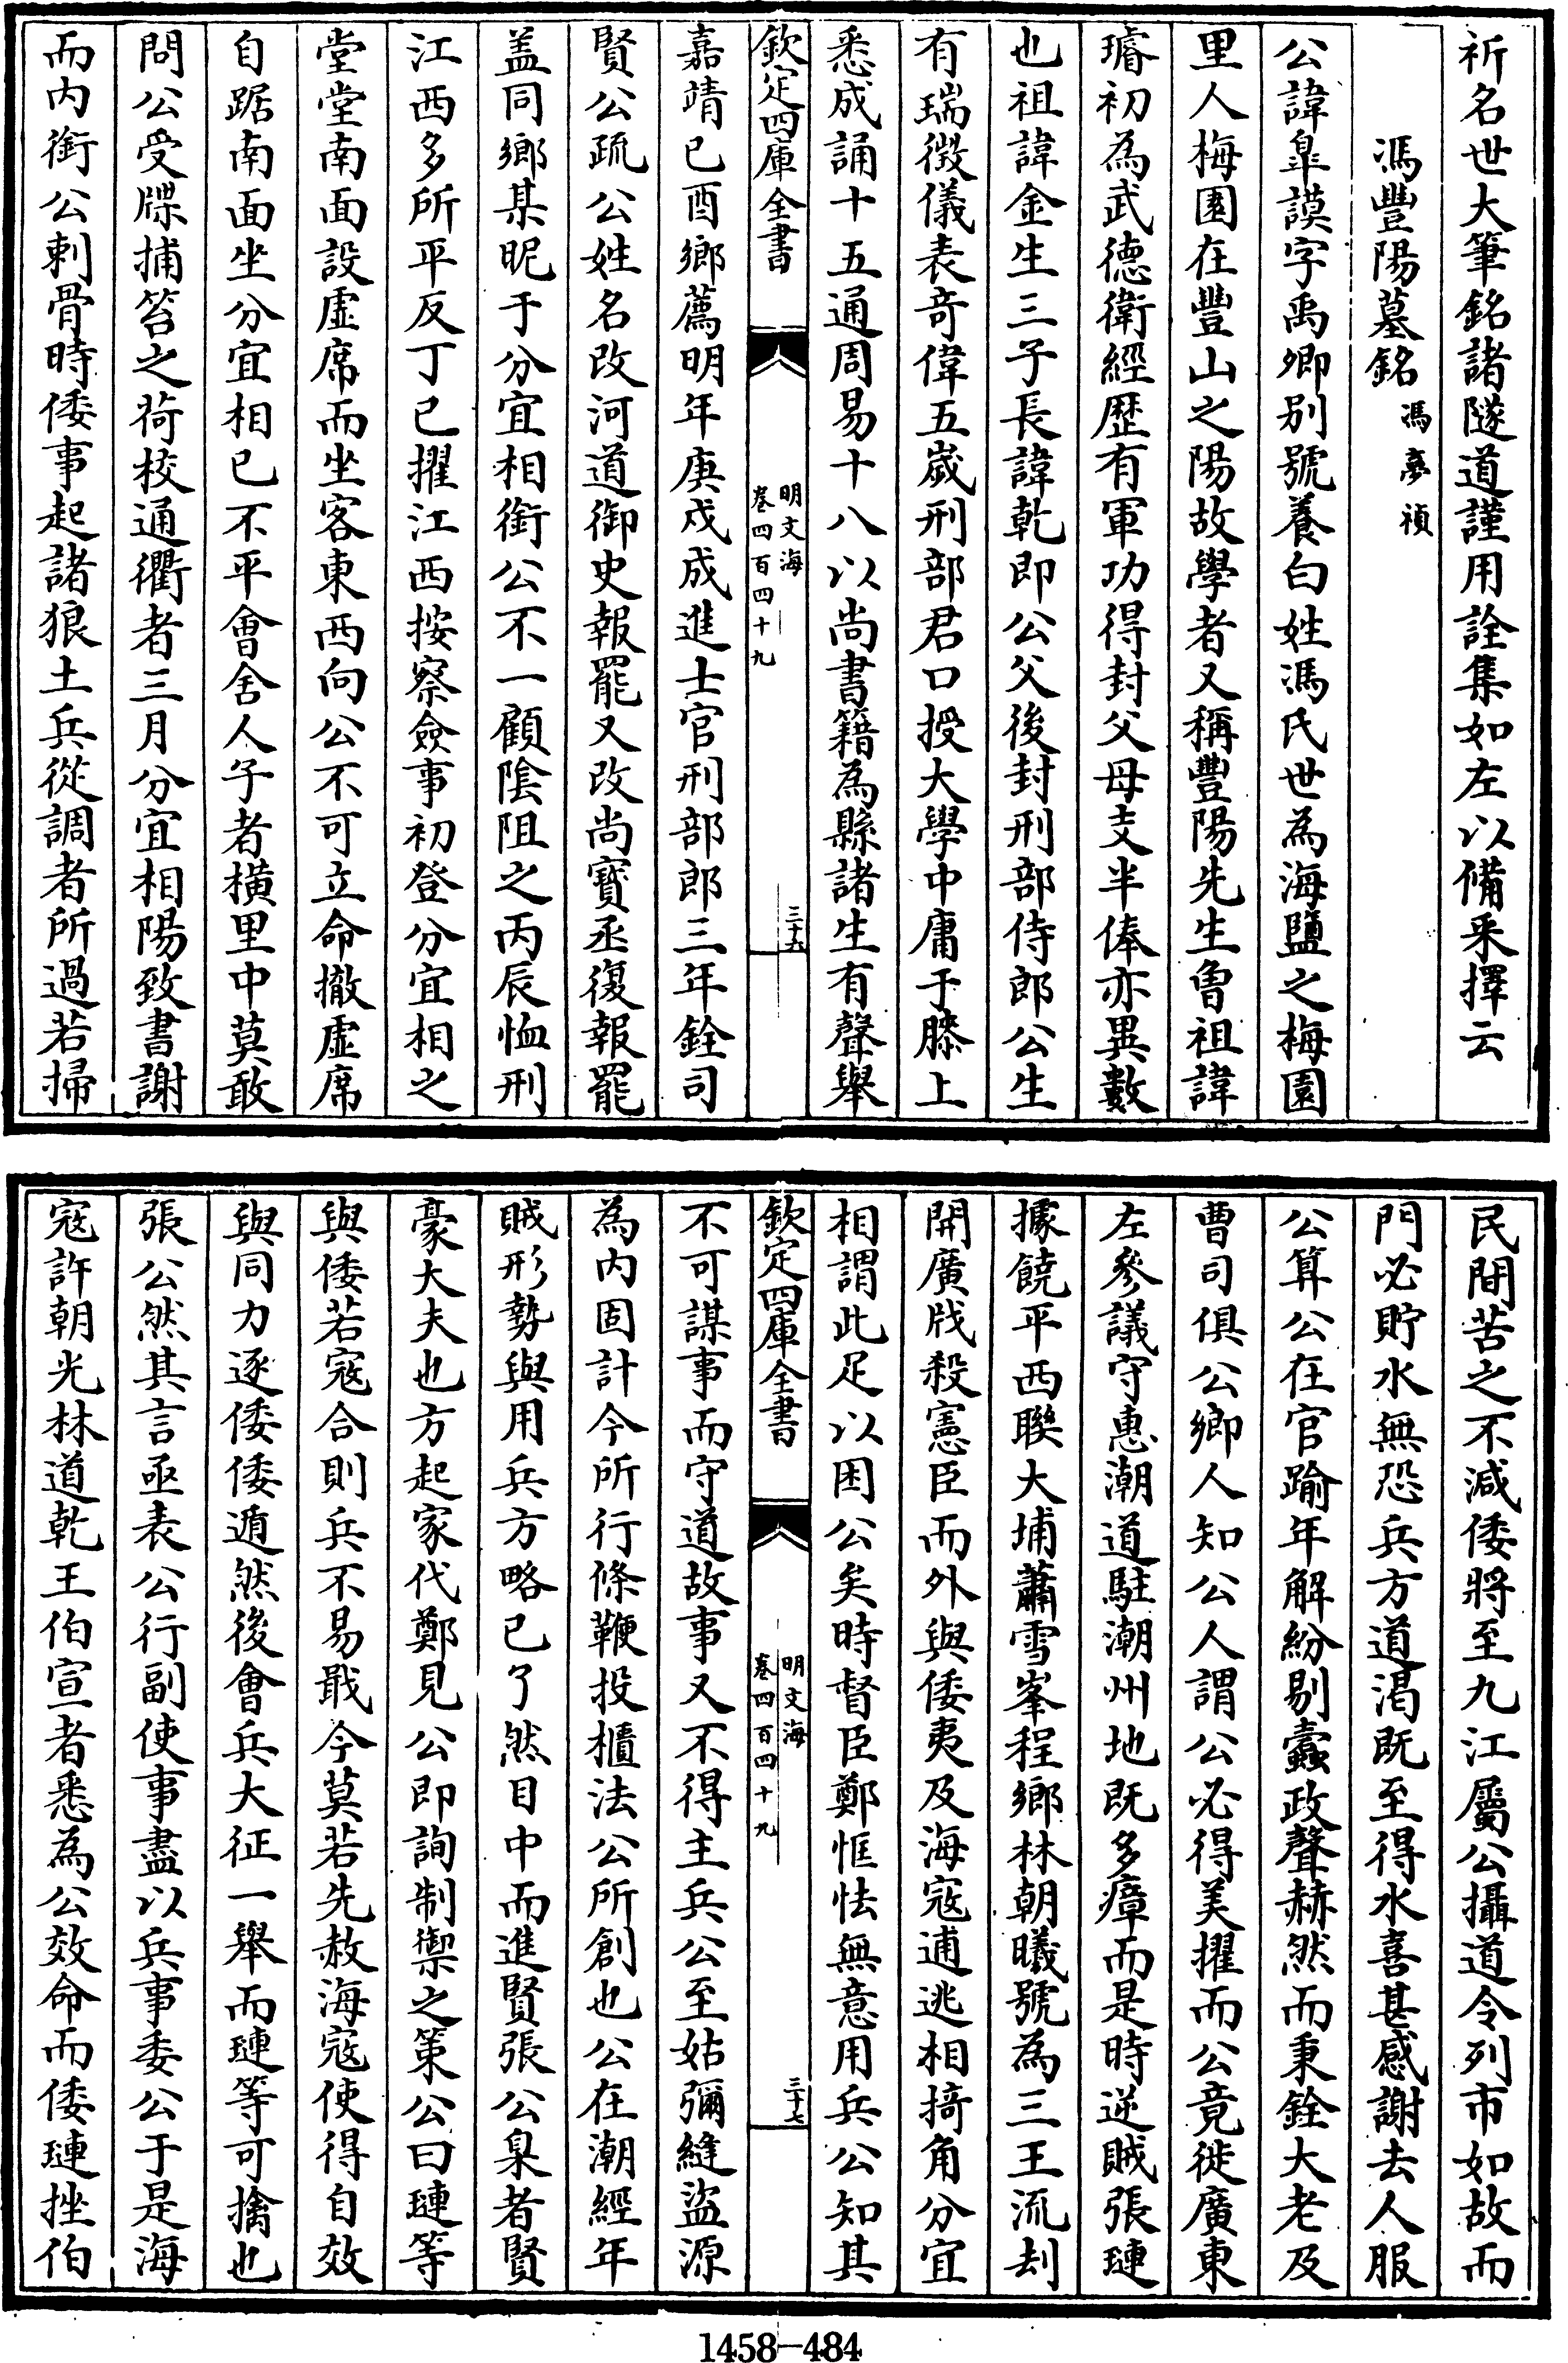 祈名世大筆銘諸隧道謹用詮集如左以備采擇云
馮豐陽墓銘 馮夢禎
公諱臯謨字禹卿别號養白姓馮氏世為海鹽之梅園
里人梅園在豐山之陽故學者又稱豐陽先生魯祖諱
璿初為武德衛經歷有軍功得封父母支半俸亦異數
也祖諱金生三子長諱乾即公父後封刑部侍郎公生
有瑞徴儀表竒偉五歲刑部君口授大學中庸于膝上
悉成誦十五通周易十八以尚書籍為縣諸生有聲舉
欽定四庫全書
明文海
卷四百四十九
三十六
嘉靖己酉鄉薦明年庚戌成進士官刑部郎三年銓司
賢公疏公姓名改河道御史報罷又改尚寶丞復報罷
盖同鄉某昵于分宜相銜公不一顧隂阻之丙辰恤刑
江西多所平反丁巳擢江西按察僉事初登分宜相之
堂堂南面設虚席而坐客東西向公不可立命撤虚席
自踞南面坐分宜相已不平會舍人子者横里中莫敢
問公受牒捕笞之荷校通衢者三月分宜相陽致書謝
而内銜公刺骨時倭事起諸狼土兵從調者所過若掃
民間苦之不減倭將至九江屬公攝道令列市如故而
門必貯水無恐兵方道渴既至得水喜甚感謝去人服
公算公在官踰年解紛剔蠹政聲赫然而秉銓大老及
曹司俱公鄉人知公人謂公必得美擢而公竟徙廣東
左參議守惠潮道駐潮州地既多瘴而是時逆賊張璉
據饒平西聯大埔蕭雪峯程鄉林朝曦號為三王流刦
開廣戕殺憲臣而外與倭夷及海寇逋逃相掎角分宜
相謂此足以困公矣時督臣鄭恇怯無意用兵公知其
欽定四庫全書
明文海
卷四百四十九
三十七
不可謀事而守道故事又不得主兵公至姑彌縫盜源
為内固計今所行條鞭投櫃法公所創也公在潮經年
賊形勢與用兵方略已了然目中而進賢張公臬者賢
豪大夫也方起家代鄭見公即詢制禦之策公曰璉等
與倭若寇合則兵不易戢今莫若先赦海寇使得自效
與同力逐倭倭遁然後會兵大征一舉而璉等可擒也
張公然其言亟表公行副使事盡以兵事委公于是海
寇許朝光林道乾王伯宣者悉為公效命而倭璉挫伯
1458—484